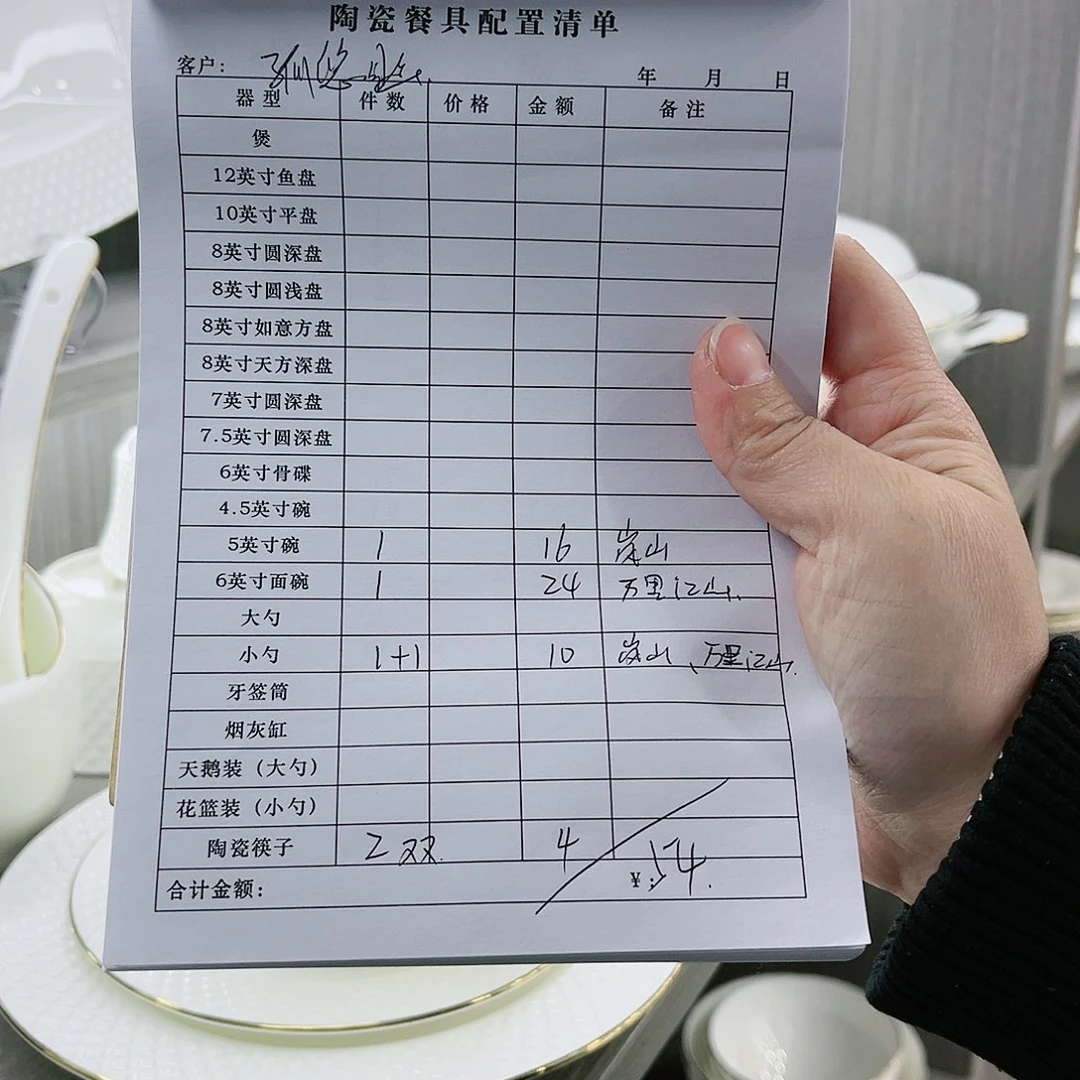 陶瓷餐具配置清单
客户: 年 月 日
器型 件数 价格 金额 备注
煲
12英寸鱼盘
10英寸平盘
8英寸圆深盘
8英寸圆浅盘
8英寸如意方盘
8英寸天方深盘
7英寸圆深盘
7.5英寸圆深盘
6英寸骨碟
4.5英寸碗
5英寸碗 1 16 岚山
6英寸面碗 1 24 万里江山.
大勺
小勺 1+1 10 岚山、万里江山.
牙签筒
烟灰缸
天鹅装（大勺）
花篮装（小勺）
陶瓷筷子 2双. 4
合计金额: ¥:54.